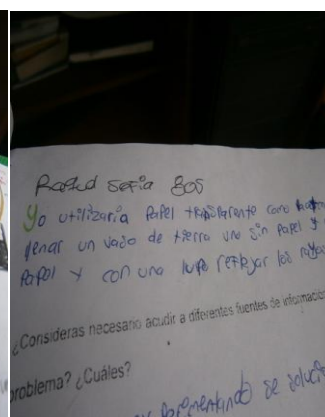 Sofia 805
Yo utilizaria Papel transparente como
llenar un vaso de tierra uno sin Papel y
Papel y con una lupa reflejar los rayos
¿Consideras necesario acudir a diferentes fuentes de informació
problema? ¿Cuáles?
se soluci